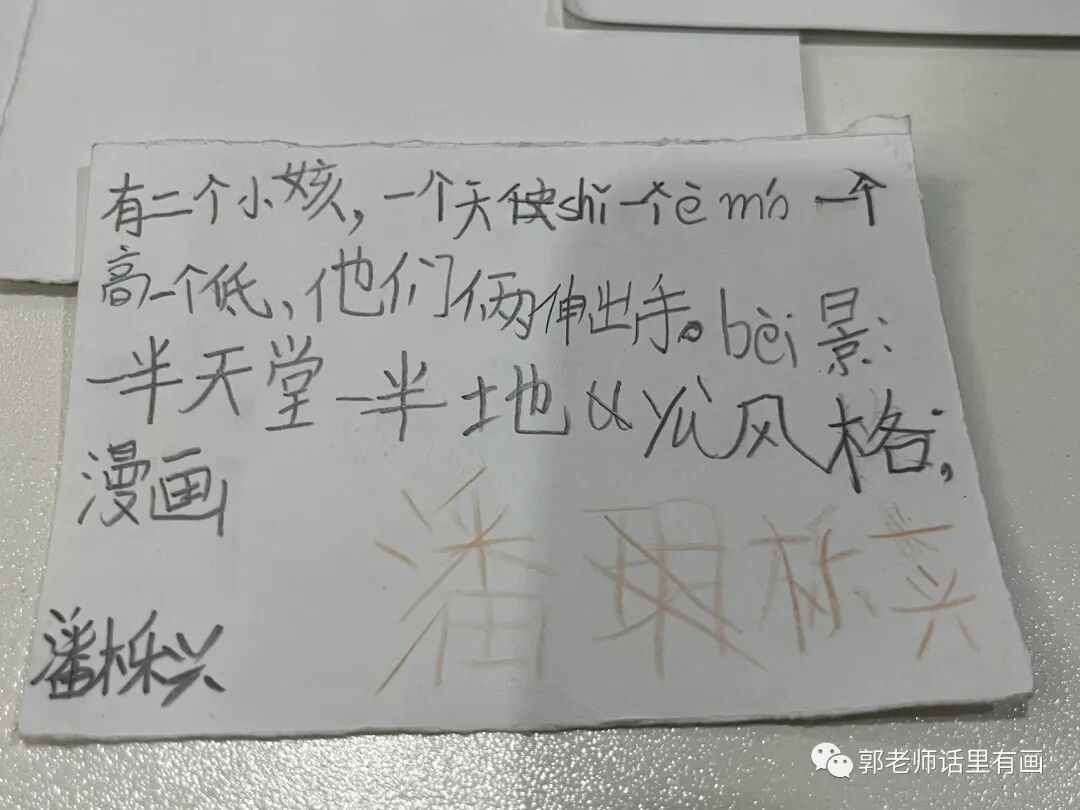 有二个小孩，一个天使shǐ一个è mó 一个
高一个低、他们俩伸出手。bèi景：
一半天堂一半地yù风格：
漫画
潘 栎兴
潘栎兴
郭老师话里有画